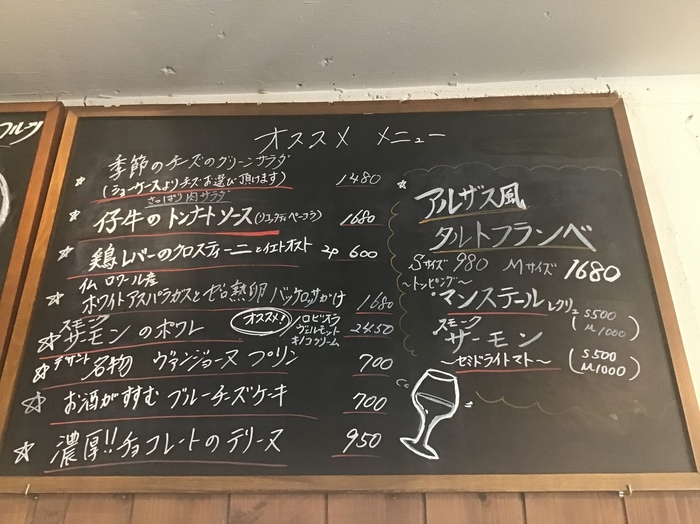 オススメ メニュー
季節のチーズのグリーンサラダ
(ショーケースよりチーズお選び頂けます) 1480
さっぱり肉サラダ
仔牛のトンナートソース 1680
鶏レバーのクロスティーニ 2p 600
仏 ロワール産
ホワイトアスパラガスとゼロ熱卵 がけ 1680
スモーク
サーモンのポワレ オススメ! ノロビスラ ヴェルモット キノコクリーム 2450
デザート 名物 ヴァンジョーヌ プリン 700
お酒がすすむ ブルーチーズケーキ 700
濃厚!!チョコレートのテリーヌ 950
アルザス風
タルトフランベ
Sサイズ 980 Mサイズ 1680
〜トッピング〜
・マンステール (S500 M1000)
スモーク
サーモン
〜セミドライトマト〜 (S500 M1000)